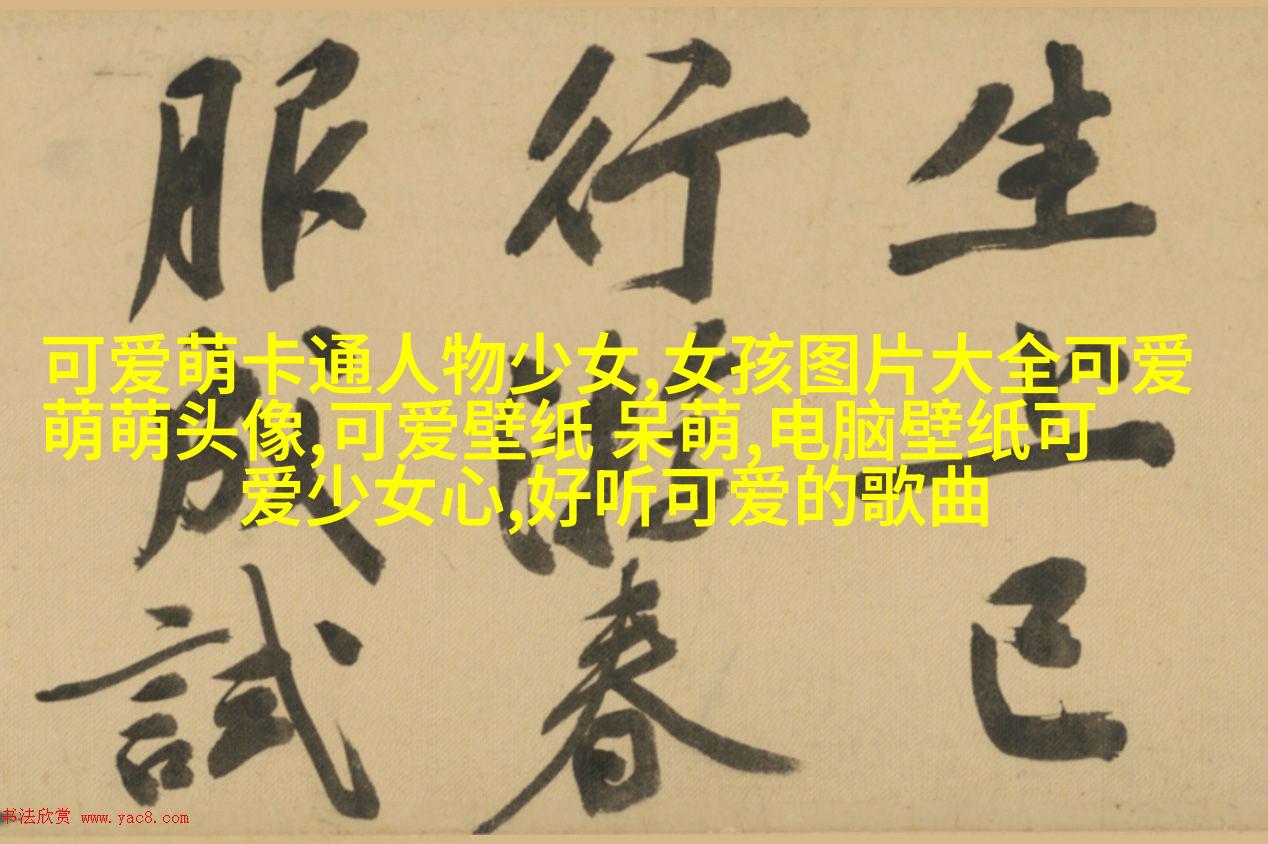 生上巳
行春
服成試
可爱萌卡通人物少女,女孩图片大全可爱
萌萌头像,可爱壁纸 呆萌,电脑壁纸可
爱少女心,好听可爱的歌曲
书法欣赏 www.yac8.com